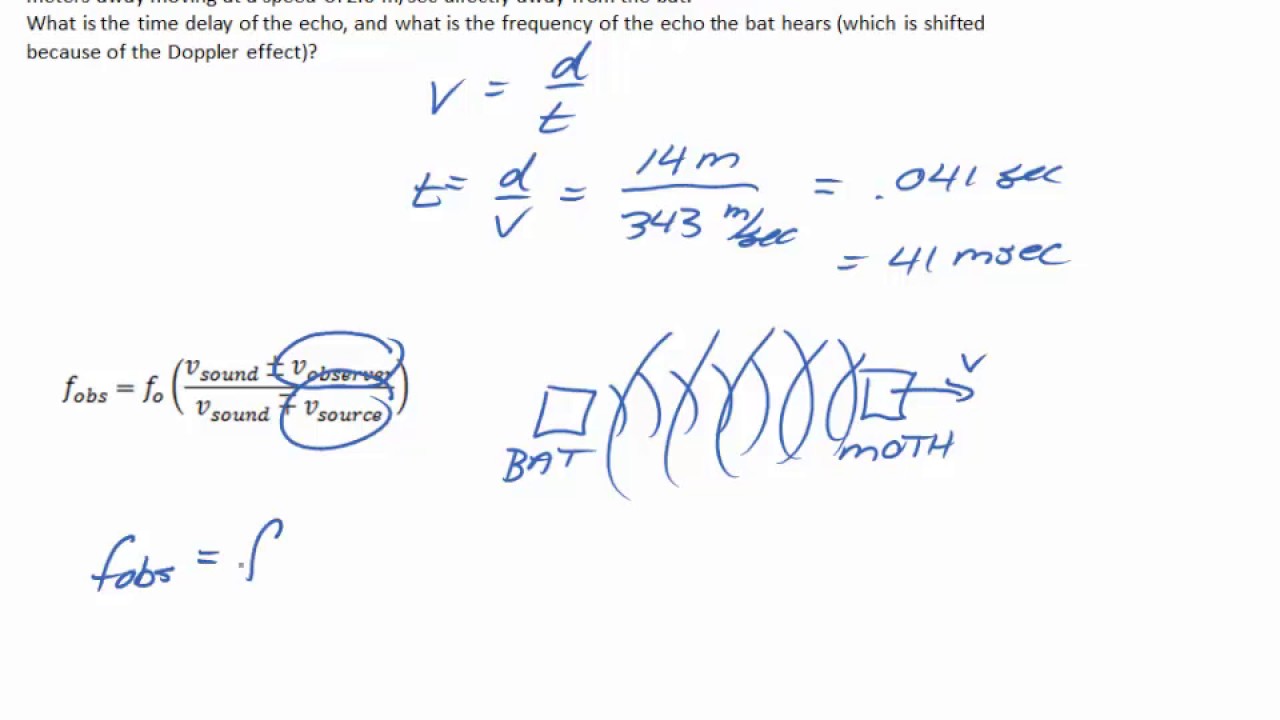 meters away moving at a speed of 2.0 m/sec directly away from the bat.
What is the time delay of the echo, and what is the frequency of the echo the bat hears (which is shifted
because of the Doppler effect)?
v = d/t
t = d/v = 14 m / 343 m/sec = .041 sec
= 41 msec
f_obs = f_o ( (v_sound ± v_observer) / (v_sound ∓ v_source) )
v
BAT
MOTH
f_obs = f